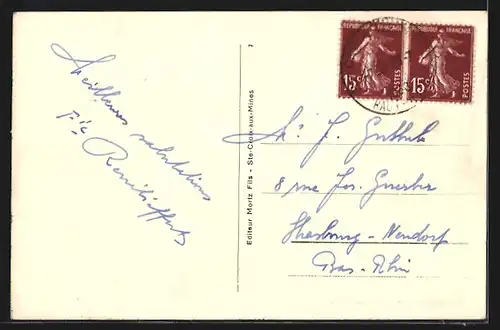 Meilleures salutations
RÉPUBLIQUE FRANÇAISE
15c POSTES
RÉPUBLIQUE FRANÇAISE
15c POSTES
Editeur Moritz Fils - Ste-Croix-aux-Mines
Mr. J.
8 rue Jos. Guerber
Strasbourg - Neudorf
Bas-Rhin